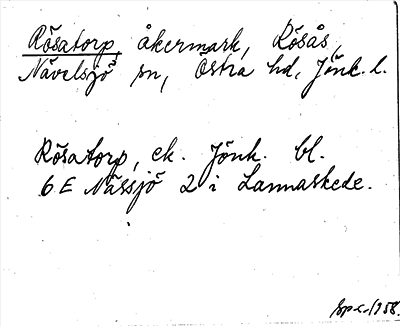 Rösatorp, åkermark, Rösås,
Nävelsjö sn, Östra hd, Jönk. l.
Rösatorp, ek. Jönk. bl.
6 E Nässjö 2 i Lannaskede.
sp.c. 1958.